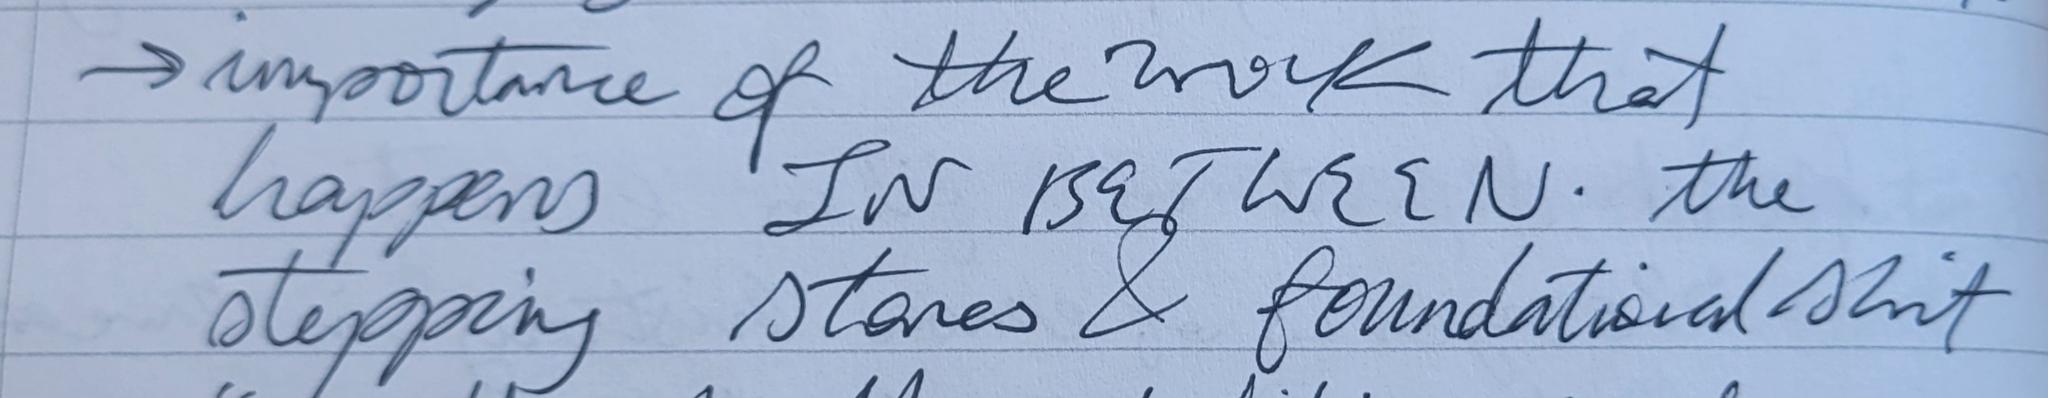 → importance of the work that
happens IN BETWEEN. the
stepping stones & foundational shit